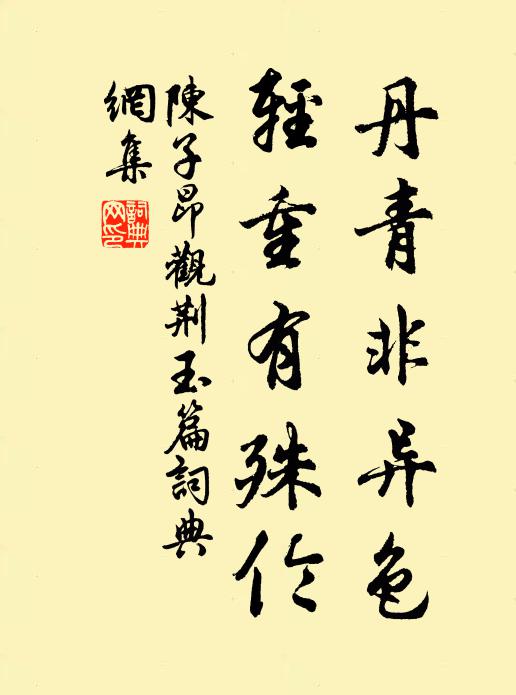 丹青非异色
輕重有殊伦
陳子昂觀荆玉篇詞典
網集
詞典
网印